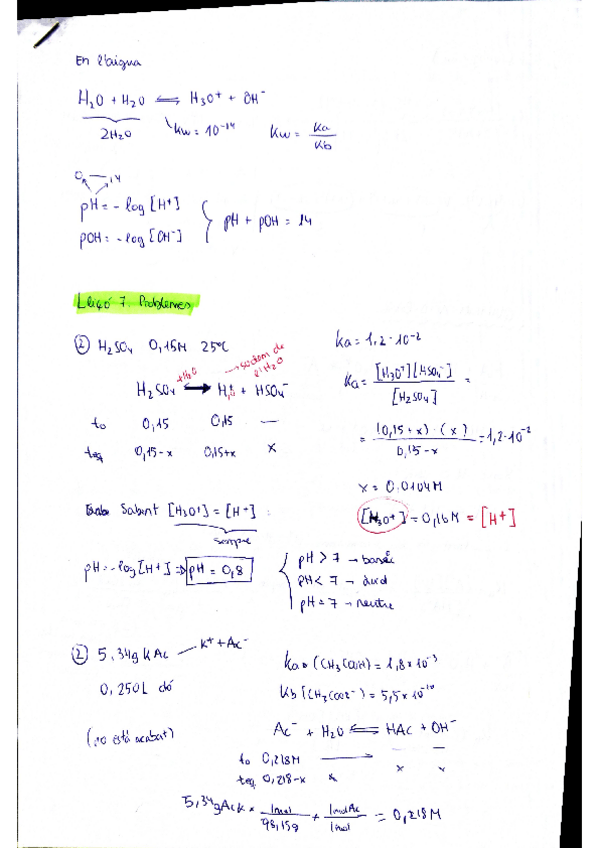 En l'aigua
H₂O + H₂O ⇌ H₃O⁺ + OH⁻
2H₂O
Kw = 10⁻¹⁴
Kw = Ka/Kb
0 — 14
pH = - log [H⁺]
pOH = - log [OH⁻]
pH + pOH = 14
Lliçó 7. Problemes
② H₂SO₄ 0,15M 25ºC
Ka = 1,2·10⁻²
+H₂O
H₂SO₄ ⟷ H₃O⁺ + HSO₄⁻
Ka = [H₃O⁺][HSO₄⁻] / [H₂SO₄] =
to 0,15 0,15 —
= (0,15+x)·(x) / 0,15-x = 1,2·10⁻²
teq 0,15-x 0,15+x x
x = 0.0104M
Sabent [H₃O⁺] = [H⁺]
[H₃O⁺] = 0,16M = [H⁺]
sempre
pH = -log[H⁺] ⇒ pH = 0,8
pH > 7 → bàsic
pH < 7 → àcid
pH = 7 → neutre
② 5.34g KAc — K⁺ + Ac⁻
0,250L
Kb (CH₃COO⁻) = 5,5×10⁻¹⁰
(no està acabat)
Ac⁻ + H₂O ⇌ HAc + OH⁻
to 0,218M — —
teq 0,218-x x x
5,34gAcK × 1mol/98,15g + 1molAc/1mol = 0,218M